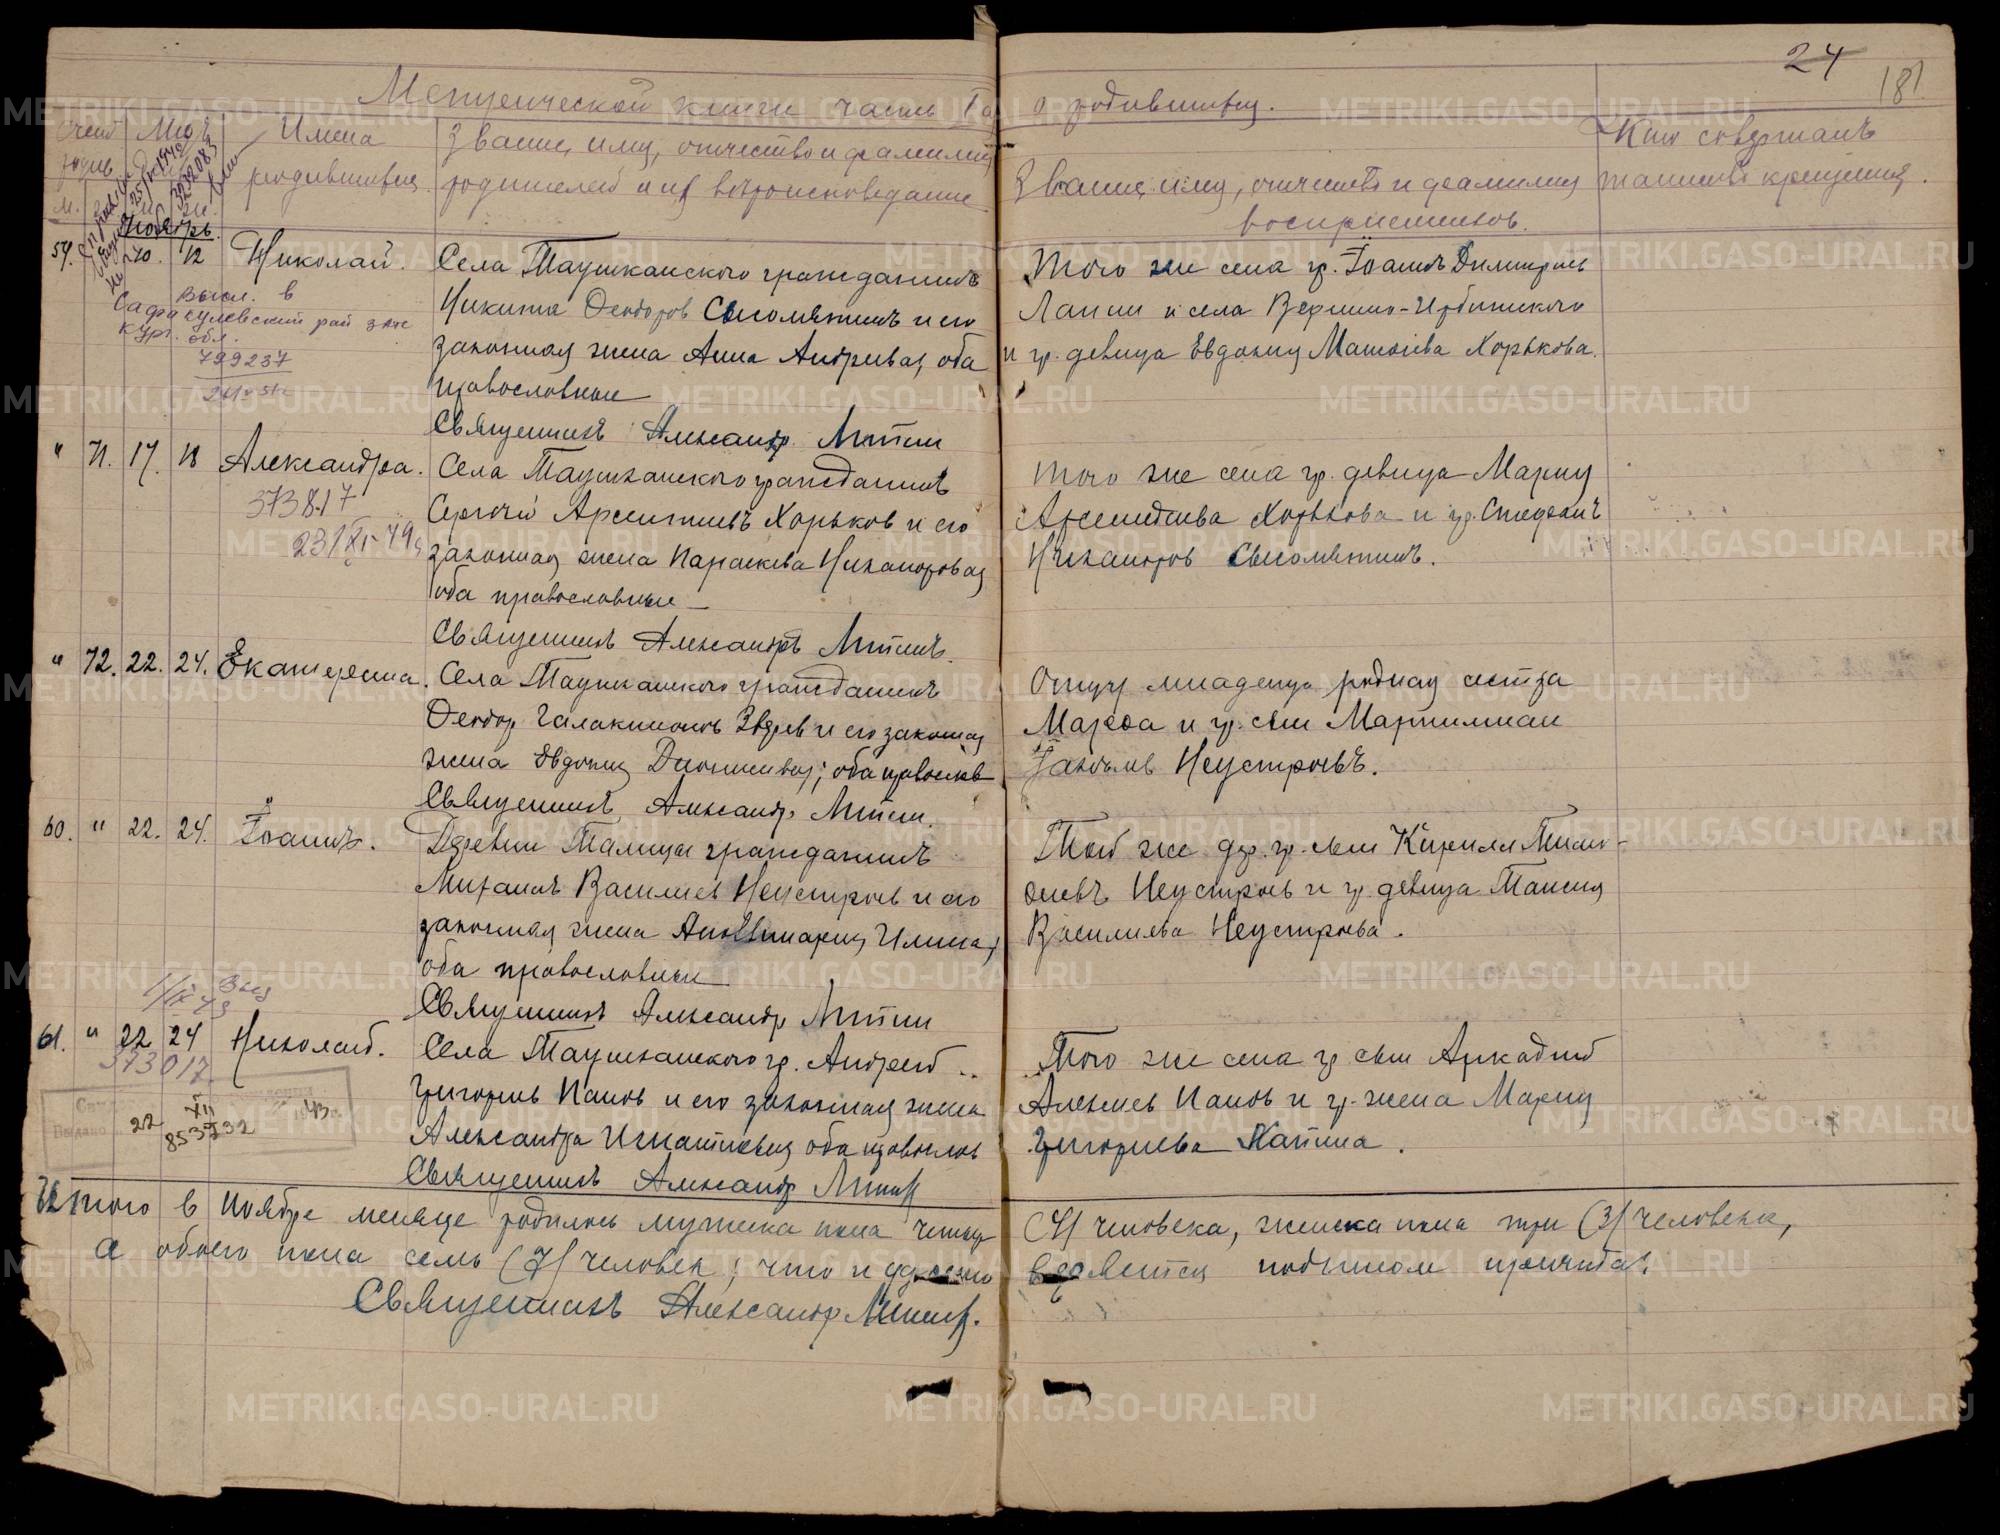 24
181
Метрической книги часть Iа о родившихся.
Счет родив. Месяцъ Имена родившихся Звание, имя, отчество и фамилия родителей и их вероисповедание
Звание, имя, отчество и фамилия восприемников.
Кто совершалъ таинство крещения.
м.
Ноябрь.
59. 10. 12 Николай.
Села Таушканского гражданинъ
Никита Феодоров Сысолятинъ и его
законная жена Анна Андриева, оба
православные
Священникъ Александр
Того же села гр. Iоаннъ Димитриев
Лапин и села Вершино-Ирбитского
и гр. девица Евдокия Матвиева Хорькова.
высл. в
Сафакулевский рай загс
Кург. обл.
799237
" 71. 17. 18 Александра.
373817
23/XI-49г
Села Таушканского гражданинъ
Сергий Арсентиевъ Хорьков и его
законная жена Параскева Никаноровая
оба православные
Священникъ Александръ
того же села гр. девица Мария
Арсентиева Хорькова и гр. Стефанъ
Никаноров Сысолятинъ.
" 72. 22. 24. Екатерина.
Села Таушканского гражданинъ
Феодор Галактионов Зверев и его законая
жена Евдокия Дионисиева; оба православ
Священникъ Александр
Отцу младенца родная сестра
Марфа и гр. сын Мартимиан
Iаковлев Неустроевъ.
60. " 22. 24. Iоаннъ.
Деревни Талицы гражданинъ
Михаилъ Василиев Неустроев и его
законная жена Аполлинария Илина,
оба православные
Священникъ Александр
Той же дер. гр. сын Кирилл Тимо-
фиевъ Неустроев и гр. девица Таисия
Василиева Неустроева.
61. " 22 24 Николай.
373017
Села Таушканского гр. Андрей
Григориев Панов и его законная жена
Александра Игнатиевая оба православ
Священникъ Александр
Того же села гр сын Аркадий
Алексиев Панов и гр. жена Мария
Григориева Лапина.
22 XII 43
853732
Итого в Ноябре месяце родилось мужска пола четыр (4) человека, женска пола три (3) человека,
а обоего пола семь (7) человек; что и удосто веряется подписом причта:
Священникъ Александр
METRIKI.GASO-URAL.RU